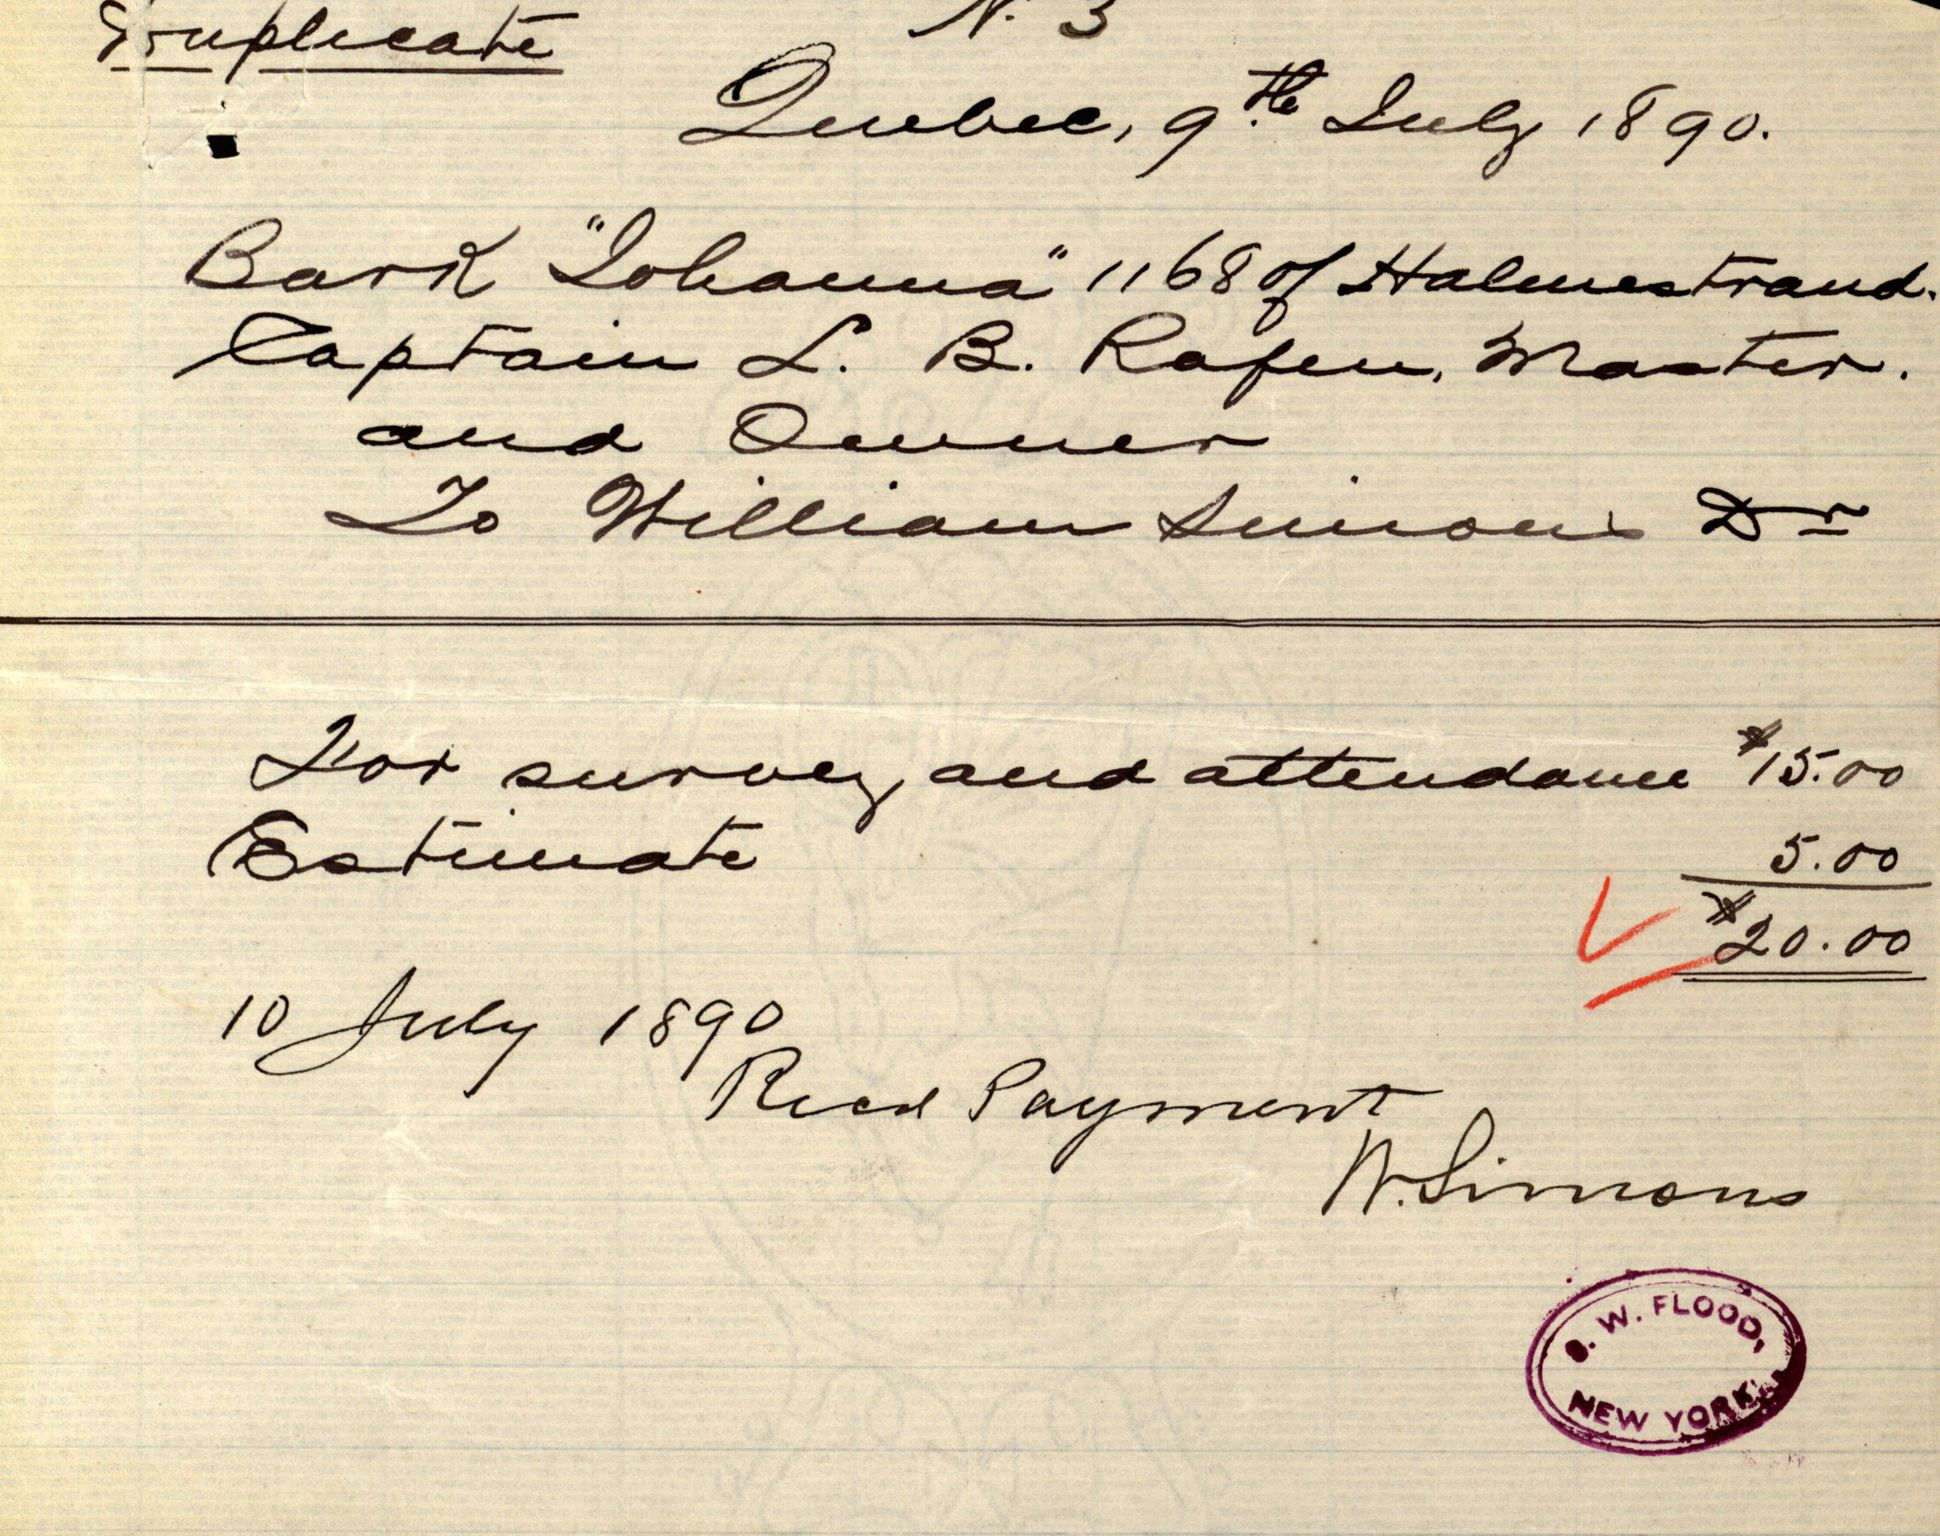 Truplicate
N. 3
Quebec, 9th July 1890.
Bark "Johanna" 1168 of Halmestrand.
Captain L. B. Rafen, Master.
and Owner
To William Simons Dr
For survey and attendance $15.00
Estimate 5.00
$20.00
10 July 1890
Recd Payment
W. Simons
W. FLOOD,
NEW YORK.